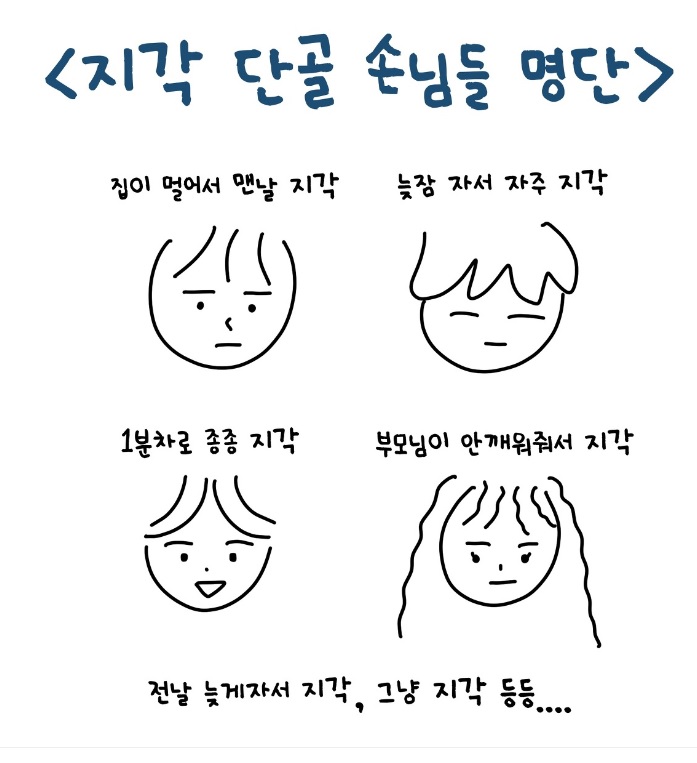 <지각 단골 손님들 명단>
집이 멀어서 맨날 지각
늦잠 자서 자주 지각
1분차로 종종 지각
부모님이 안깨워줘서 지각
전날 늦게자서 지각, 그냥 지각 등등....